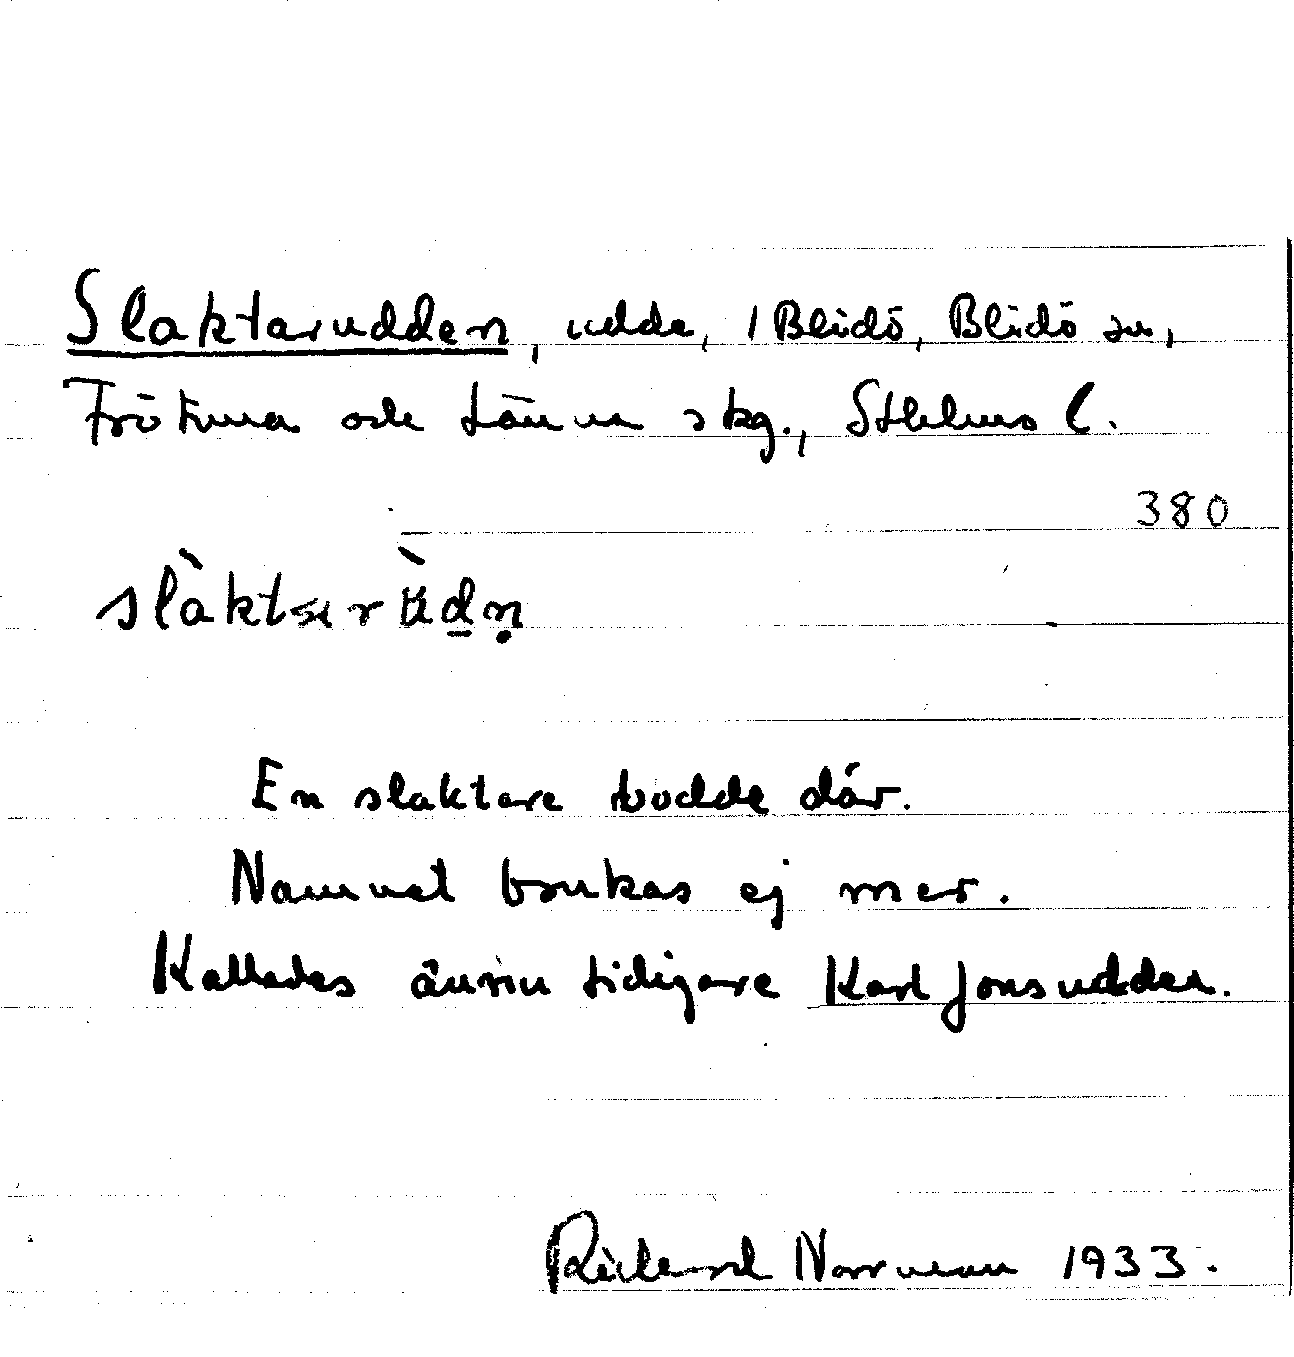 Slaktarudden, udde, 1 Blidö, Blidö sn,
Frötuna och Länna skg., Sthlms l.
380
slàktærùd̲ṇ
En slaktare bodde där.
Namnet brukas ej mer.
Kallades ännu tidigare Karl Jonsudden.
Rickard Norrman 1933.